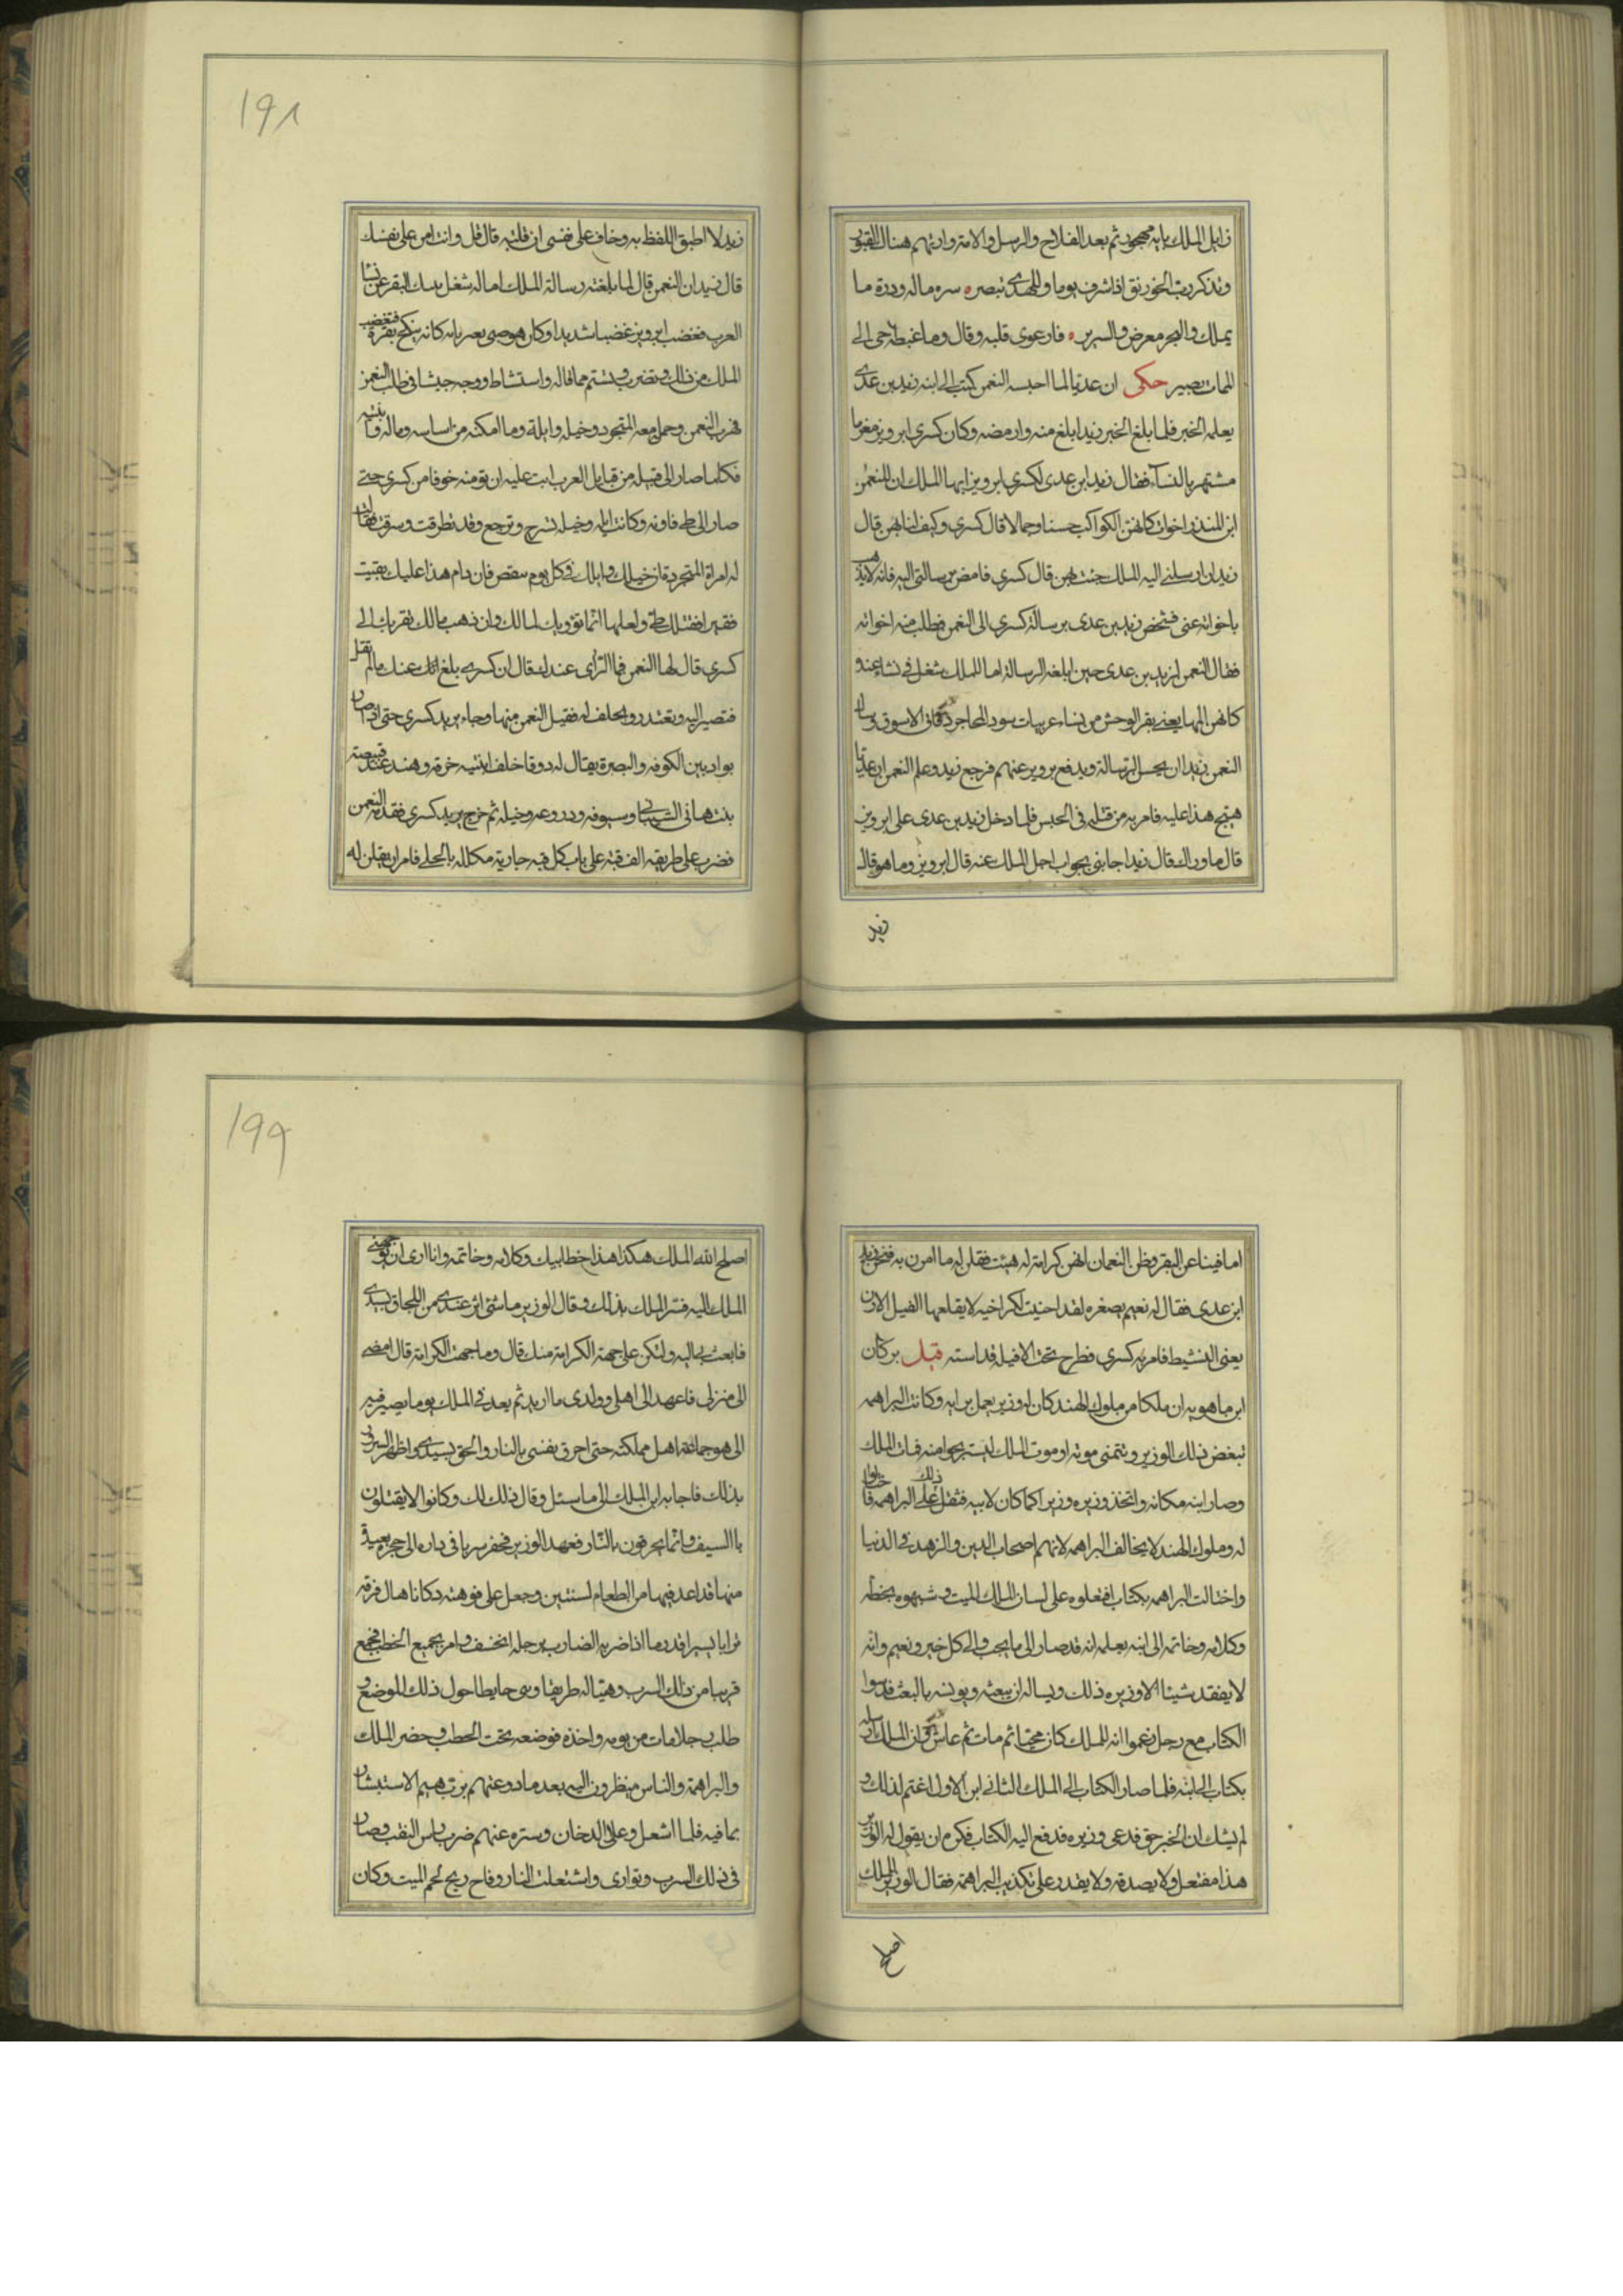 زايل الملك بابه مهجور ثم بعد الفلاح والرسل والامة وارتهم هناك القبور
وتذكر رب الخورنق اذ اشرف يوما وللهدى تبصره سره ماله وكثرة ما
يملك والبحر معرض والسرير فارعوى قلبه وقال وما غبطة حى الى
الممات يصير حكى ان عديا لما احبسه النعمن كتب الى ابنه زيد بن عدى
يعلمه الخبر فلما ابلغ الخبر زيدا بلغ منه وارمضه وكان كسرى ابرويز مغرما
مشتهر بالنسآء فقال زيد ابن عدى لكسرى ابرويز ايها الملك ان للنعمن
ابن المنذر اخوات كانهن الكواكب حسنا وجمالا قال كسرى وكيف لنا بهن قال
زيد ان ارسلنى اليه الملك جئت بهن قال كسرى فامض برسالتى اليه فانه لا يذهب
باخواته عنى فشخص زيد بن عدى برسالة كسرى الى النعمن فطلب منه اخواته
فقال النعمن لزيد بن عدى حين ابلغه الرسالة اما للملك شغل فى نساء عنده
كانهن المها يعنى بقر الوحش من نساء عربيات سود المحاجر دقاق الاسوق وسال
النعمن زيدا ان يحسن الرسالة ويدفع برويز عنهم فرجع زيد وعلم النعمن ان عديا
هيج هذا عليه فامر به من قتله فى الحبس فلما دخل زيد بن عدى على ابرويز
قال ما وراك قال زيد اجابنى بجواب اجل الملك عنه قال ابرويز وما هو قال
زيد
١٩٨
زيد لا اطيق اللفظ به وخاف على نفسى ان قلته قال قل وانت امن على نفسك
قال زيد ان النعمن قال لما بلغته رسالة الملك اما له شغل ببك البقر عن نسا
العرب فغضب ابرويز غضبا شديدا وكان هو صى بعر بانه كانه ينكح بقرة فغضب
الملك من ذلك وتضرب وشتم مما قاله واستشاط ووجه جيشا فى طلب النعمن
فهرب النعمن وحمل معه المتجرد وخيله وابله وما امكنه من اساسه وماله وابنتيه
فكلما صار الى قبيله من قبايل العرب ابت عليه ان تؤمنه خوفا من كسرى حتى
صار الى طى فاوته وكانت ابله وخيله تسرح وترجع وقد تطرقت وسرقت فقالت
له امراة المتجرد قان خيلك وابلك فى كل يوم ينقص فان دام هذا عليك بقيت
فقيرا فقتلك طى ولعلها انما تؤويك لمالك وان ذهب مالك تقربك الى
كسرى قال لها النعمن فما الراى عندك قال ان كسرى بلغ انك عنك ما لم تقل
فتصير اليه وتعتذر وتحلف له فقبل النعمن منها وجاء يريد كسرى حتى اذا صار
بواد بين الكوفه والبصرة يقال له ذوقا خلف ابنتيه خرقه وهند عند قبيصة
بنت هانى الشيبانى وسيوفه ودروعه وخيله ثم خرج يريد كسرى فقدمه النعمن
فضرب على طريقه الف قبة على باب كل قبه جارية مكلله بالحلى فامران يقلن له
اما فينا عن البقر وظن النعمان انهن كرامة له هيئت فقلن له ما امرن به فنحن زيد
ابن عدى فقال له نعيم يصغره لقد احنيت لك اخيه لا يقلعها الفيل الارن
يعنى النشيط فامر به كسرى فطرح تحت الافيله فداسته قيل بر كان
ابن ماهويه ان ملكا من ملوك الهند كان له وزير يعمل برايه وكانت البراهمه
تبغض ذلك الوزير وتتمنى موته او موت الملك ليستريحوا منه فمات الملك
وصار ابنه مكانه واتخذ وزيره وزيرا كما كان لابيه فثقل ذلك على البراهمه فاحتالوا
له وملوك الهند لا يخالف البراهمه لانهم اصحاب الدين والزهد فى الدنيا
واحتالت البراهمه بكتاب افتعلوه على لسان الملك الميت وشبهوه بخطه
وكلامه وخاتمه الى ابنه يعلمه انه قد صار الى ما يحب والى كل خير ونعيم وانه
لا يفقد شيئا الا وزيره ذلك ويساله ان يبعثه ويونسه بالبعث فدسوا
الكتاب مع رجل زعموا انه للملك كان محبا ثم مات ثم عاش وان الملك ارسله
بكتاب الى ابنه فلما صار الكتاب الى الملك الثانى ابن الاول اغتم لذلك و
لم يشك ان الخبر حق فدعى وزيره فدفع اليه الكتاب فكره ان يقول له الوزير
هذا مفتعل ولا يصدقه ولا يقدر على تكذيب البراهمة فقال الوزير للملك
اصلح
١٩٩
اصلح الله الملك هكذا هذا خط ابيك وكلامه وخاتمه وانا ارى ان توجهنى
الملك اليه فسر الملك بذلك وقال الوزير ما شئ اثر عندى من اللحاق بسيدى
فابعث بى اليه ولتكن على جهة الكرامة منك قال وما جهة الكرامة قال امضى
الى منزلى فاعهد الى اهلى وولدى ما اريد ثم يعد لى الملك يوما يصير فيه
الى هو وجماعة اهل مملكته حتى احرق نفسى بالنار والحق بسيدى واظهر السرور
بذلك فاجابه ابن الملك الى ما سئل وقال ذلك لك وكانوا لا يقتلون
با السيف وانما يحرقون بالنار فعهد الوزير فحفر سربا فى داره الى حجرة بعيدة
منها قد اعد فيها من الطعام لسنتين وجعل على فوهته دكانا هال فوقه
ترابا يسيرا قدر ما اذا ضربه الضارب برجله انخسف وامر بجميع الحطب فجمع
قريبا من ذلك السرب وهيئا له طريقا وبنى حايطا حول ذلك الموضع و
طلب رجلا مات من يومه واخذه فوضعه تحت الحطب وحضر الملك
والبراهمة والناس ينظرون اليه بعد ما دوعنهم يرتهيم الاستبشار
بما فيه فلما اشعل وعلا الدخان وستره عنهم ضرب راس النقب وصار
فى ذلك السرب وتوارى واشتعلت النار وفاح ريح لحم الميت وكان